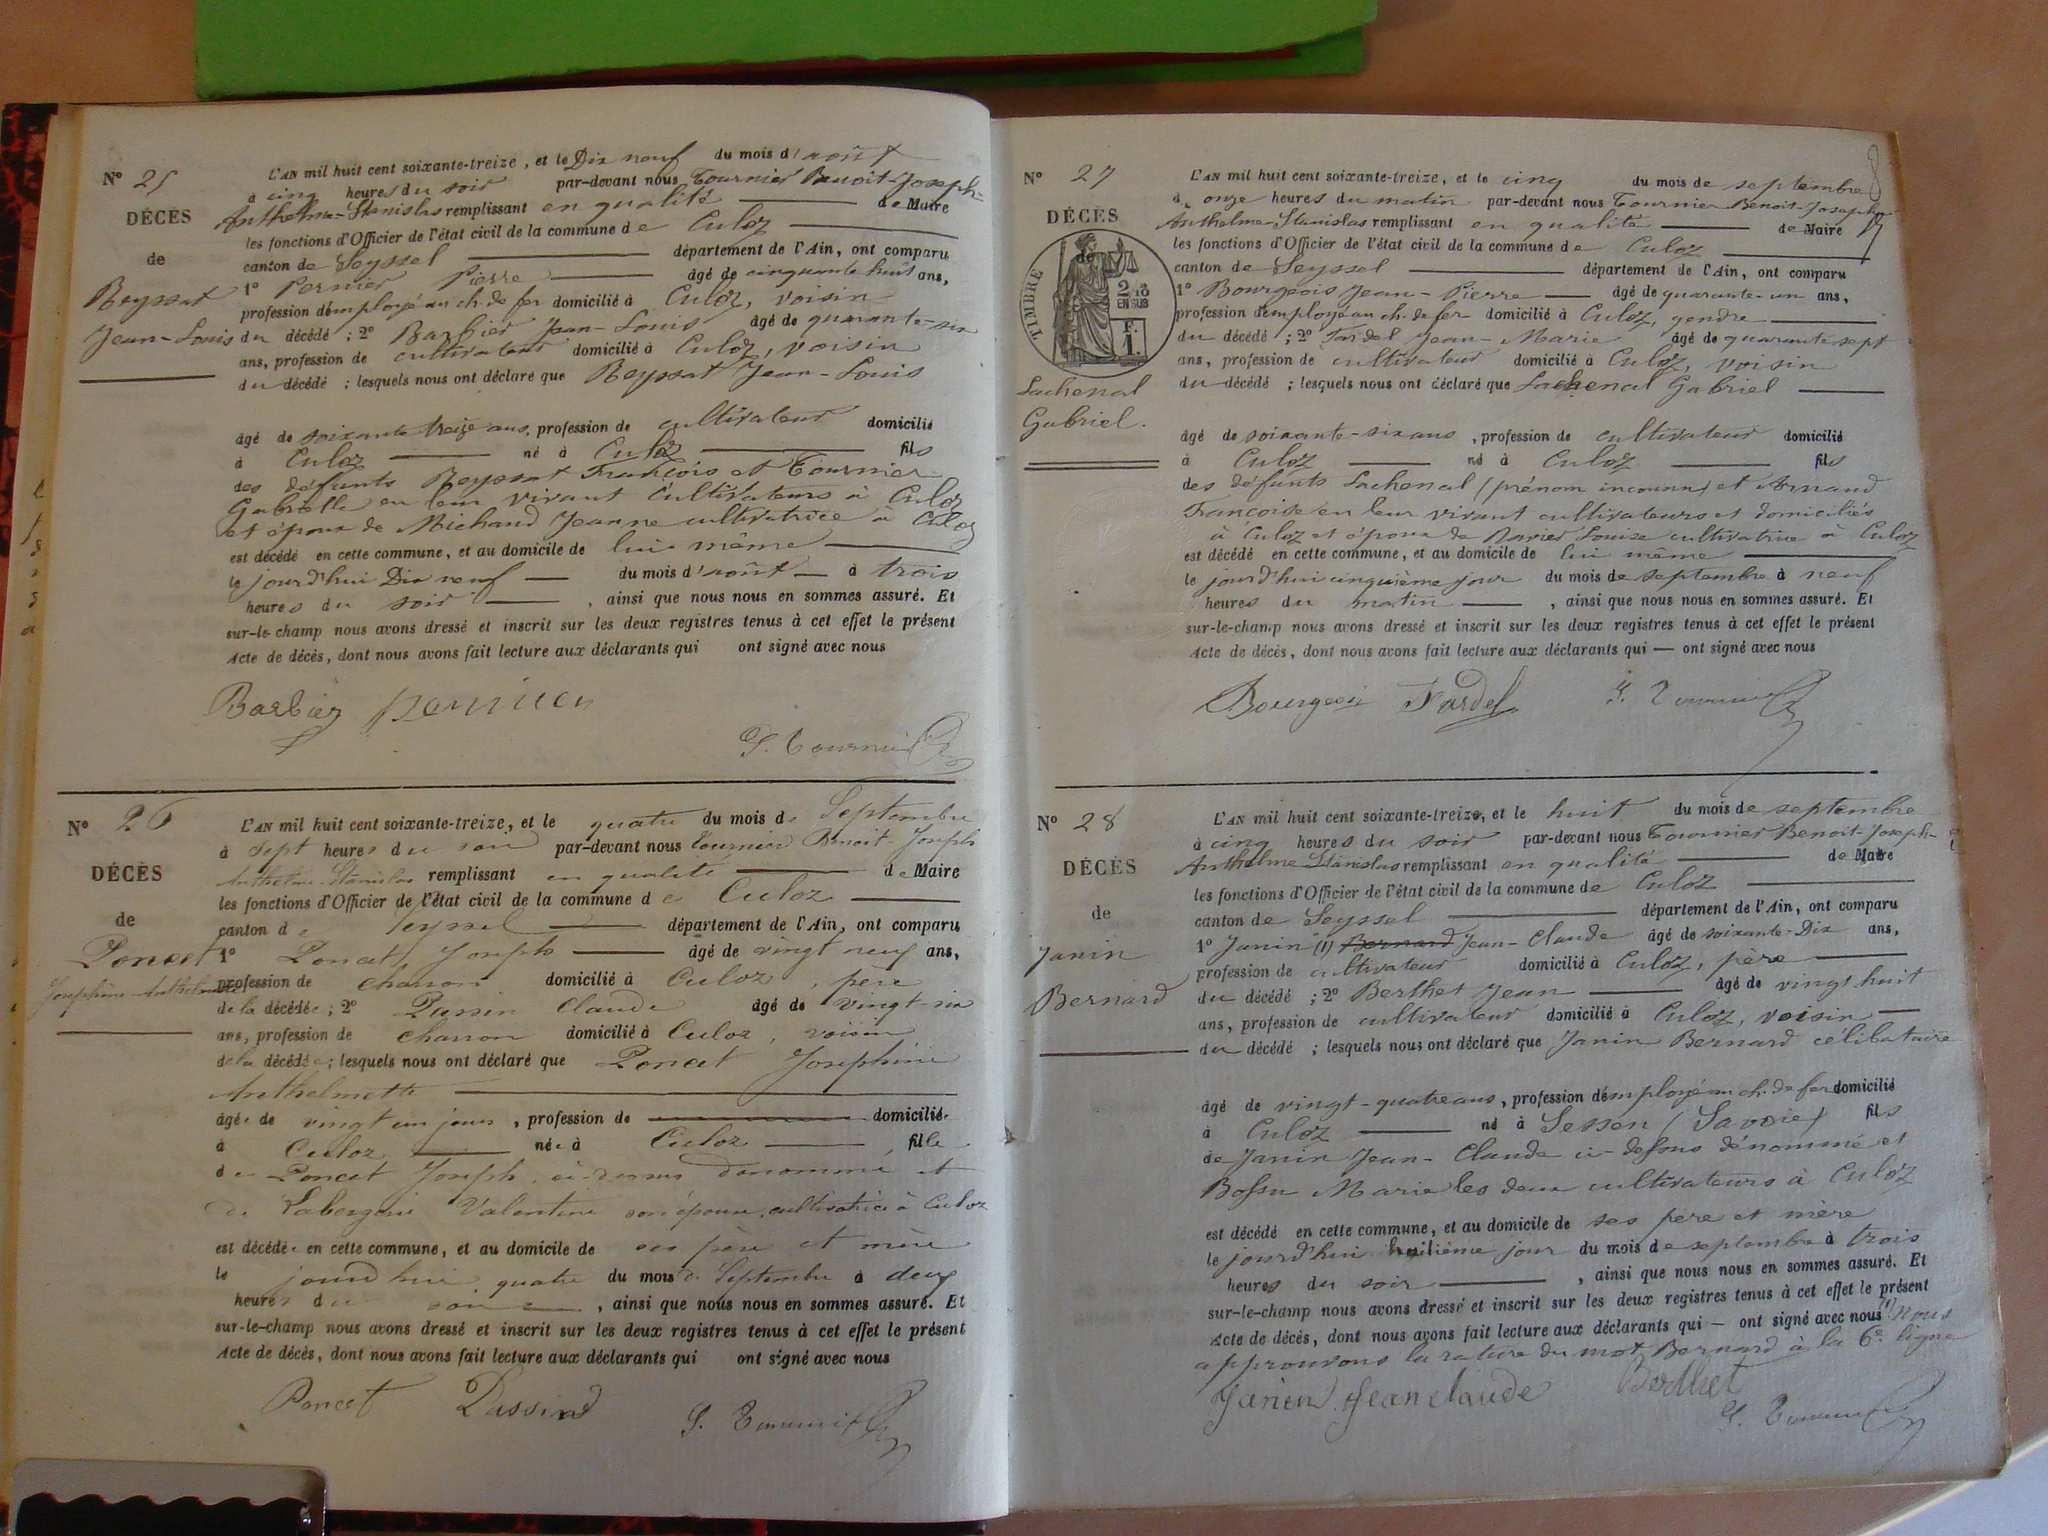 N° 25
DÉCÈS
de
Reyssat
Jean-Louis
L'AN mil huit cent soixante-treize, et le Dix neuf du mois d'août
à cinq heures du soir par-devant nous Tournier Benoit-Joseph-
Anthelme-Stanislas remplissant en qualité de Maire
les fonctions d'Officier de l'état civil de la commune de Culoz
canton de Seyssel département de l'Ain, ont comparu
1° Pernier Pierre âgé de cinquante huit ans,
profession d'employé au ch. de fer domicilié à Culoz, voisin
du décédé ; 2° Barbier Jean-Louis âgé de quarante-six
ans, profession de cultivateur domicilié à Culoz, voisin
du décédé ; lesquels nous ont déclaré que Reyssat Jean-Louis
âgé de soixante treize ans, profession de cultivateur domicilié
à Culoz né à Culoz fils
des défunts Reyssat François et Tournier
Gabrielle en leur vivant cultivateurs à Culoz
et époux de Michaud Jeanne cultivatrice à Culoz
est décédé en cette commune, et au domicile de lui même
le jourd'hui Dix neuf du mois d'août à trois
heures du soir , ainsi que nous nous en sommes assuré. Et
sur-le-champ nous avons dressé et inscrit sur les deux registres tenus à cet effet le présent
Acte de décès, dont nous avons fait lecture aux déclarants qui ont signé avec nous
Barbier Pernier
S. Tournier
N° 26
DÉCÈS
de
Poncet
Joséphine Anthelmette
L'AN mil huit cent soixante-treize, et le quatre du mois de Septembre
à Sept heures du soir par-devant nous Tournier Benoit-Joseph
Anthelme-Stanislas remplissant en qualité de Maire
les fonctions d'Officier de l'état civil de la commune de Culoz
canton de Seyssel département de l'Ain, ont comparu
1° Poncet Joseph âgé de vingt neuf ans,
profession de charron domicilié à Culoz, père
de la décédée ; 2° Passin Claude âgé de vingt six
ans, profession de charron domicilié à Culoz, voisin
de la décédée ; lesquels nous ont déclaré que Poncet Joséphine
Anthelmette
âgée de vingt un jours, profession de domiciliée
à Culoz née à Culoz fille
de Poncet Joseph ci-dessus dénommé et
de Valentine son épouse, cultivatrice à Culoz
est décédée en cette commune, et au domicile de ses père et mère
le jourd'hui quatre du mois de Septembre à deux
heures du soir , ainsi que nous nous en sommes assuré. Et
sur-le-champ nous avons dressé et inscrit sur les deux registres tenus à cet effet le présent
Acte de décès, dont nous avons fait lecture aux déclarants qui ont signé avec nous
Poncet Passin
S. Tournier
8
N° 27
DÉCÈS
de
TIMBRE
2/10
EN SUS
F.
1.
Lachenal
Gabriel.
L'AN mil huit cent soixante-treize, et le cinq du mois de septembre
à onze heures du matin par-devant nous Tournier Benoit-Joseph
Anthelme-Stanislas remplissant en qualité de Maire
les fonctions d'Officier de l'état civil de la commune de Culoz
canton de Seyssel département de l'Ain, ont comparu
1° Bourgeois Jean-Pierre âgé de quarante-un ans,
profession d'employé au ch. de fer domicilié à Culoz, gendre
du décédé ; 2° Fardel Jean-Marie âgé de quarante-sept
ans, profession de cultivateur domicilié à Culoz, voisin
du décédé ; lesquels nous ont déclaré que Lachenal Gabriel
âgé de soixante-six ans, profession de cultivateur domicilié
à Culoz né à Culoz fils
des défunts Lachenal (prénom inconnu) et Arnaud
Françoise en leur vivant cultivateurs et domiciliés
à Culoz et époux de Louise cultivatrice à Culoz
est décédé en cette commune, et au domicile de lui même
le jourd'hui cinquième jour du mois de septembre à neuf
heures du matin , ainsi que nous nous en sommes assuré. Et
sur-le-champ nous avons dressé et inscrit sur les deux registres tenus à cet effet le présent
Acte de décès, dont nous avons fait lecture aux déclarants qui — ont signé avec nous
Bourgeois Fardel S. Tournier
N° 28
DÉCÈS
de
Janin
Bernard
L'AN mil huit cent soixante-treize, et le huit du mois de septembre
à cinq heures du soir par-devant nous Tournier Benoit-Joseph-
Anthelme Stanislas remplissant en qualité de Maire
les fonctions d'Officier de l'état civil de la commune de Culoz
canton de Seyssel département de l'Ain, ont comparu
1° Janin (1) Bernard Jean-Claude âgé de soixante-Dix ans,
profession de cultivateur domicilié à Culoz, père
du décédé ; 2° Berthet Jean âgé de vingt huit
ans, profession de cultivateur domicilié à Culoz, voisin
du décédé ; lesquels nous ont déclaré que Janin Bernard célibataire
âgé de vingt-quatre ans, profession d'employé au ch. de fer domicilié
à Culoz né à Sessen (Savoie) fils
de Janin Jean-Claude ci-dessus dénommé et
Bossu Marie les deux cultivateurs à Culoz
est décédé en cette commune, et au domicile de ses père et mère
le jourd'hui huitième jour du mois de septembre à trois
heures du soir , ainsi que nous nous en sommes assuré. Et
sur-le-champ nous avons dressé et inscrit sur les deux registres tenus à cet effet le présent
Acte de décès, dont nous avons fait lecture aux déclarants qui — ont signé avec nous (1) nous
approuvons la rature du mot Bernard à la 6e ligne
Janin Jean claude Berthet
S. Tournier